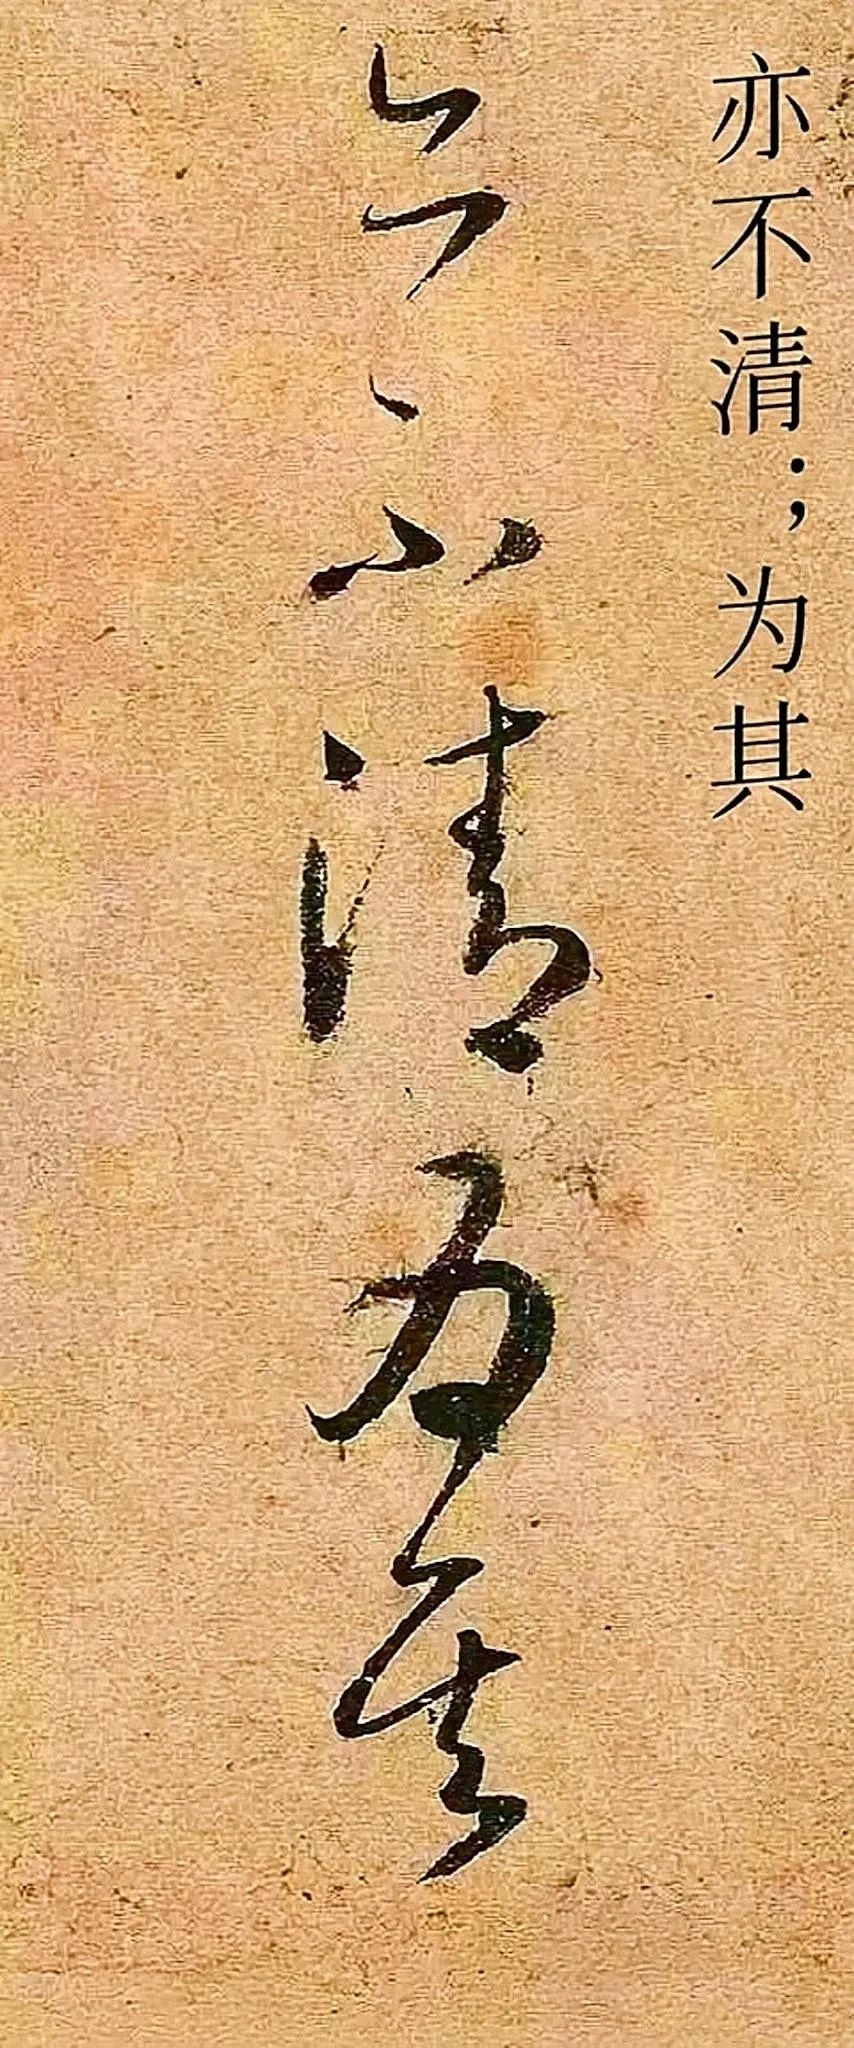 亦不清；为其
亦不清为其